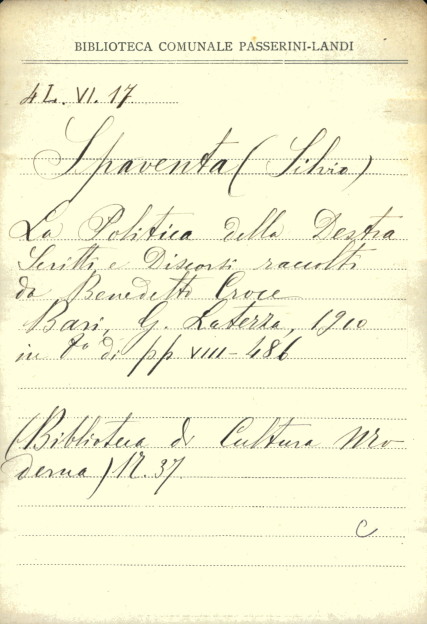 BIBLIOTECA COMUNALE PASSERINI-LANDI
4L. VI. 17
Spaventa (Silvio)
La Politica della Destra
Scritti e Discorsi raccolti
da Benedetto Croce
Bari, G. Laterza, 1910
in 8° di pp VIII-486
(Biblioteca di Cultura Mo-
derna) N. 37
C